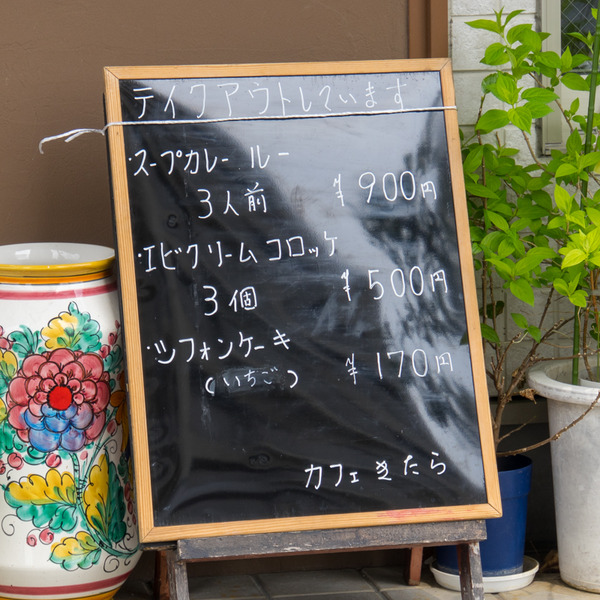 テイクアウトしています
・スープカレー ルー
3人前 ¥900円
・エビクリームコロッケ
3個 ¥500円
・シフォンケーキ
(いちご) ¥170円
カフェきたら